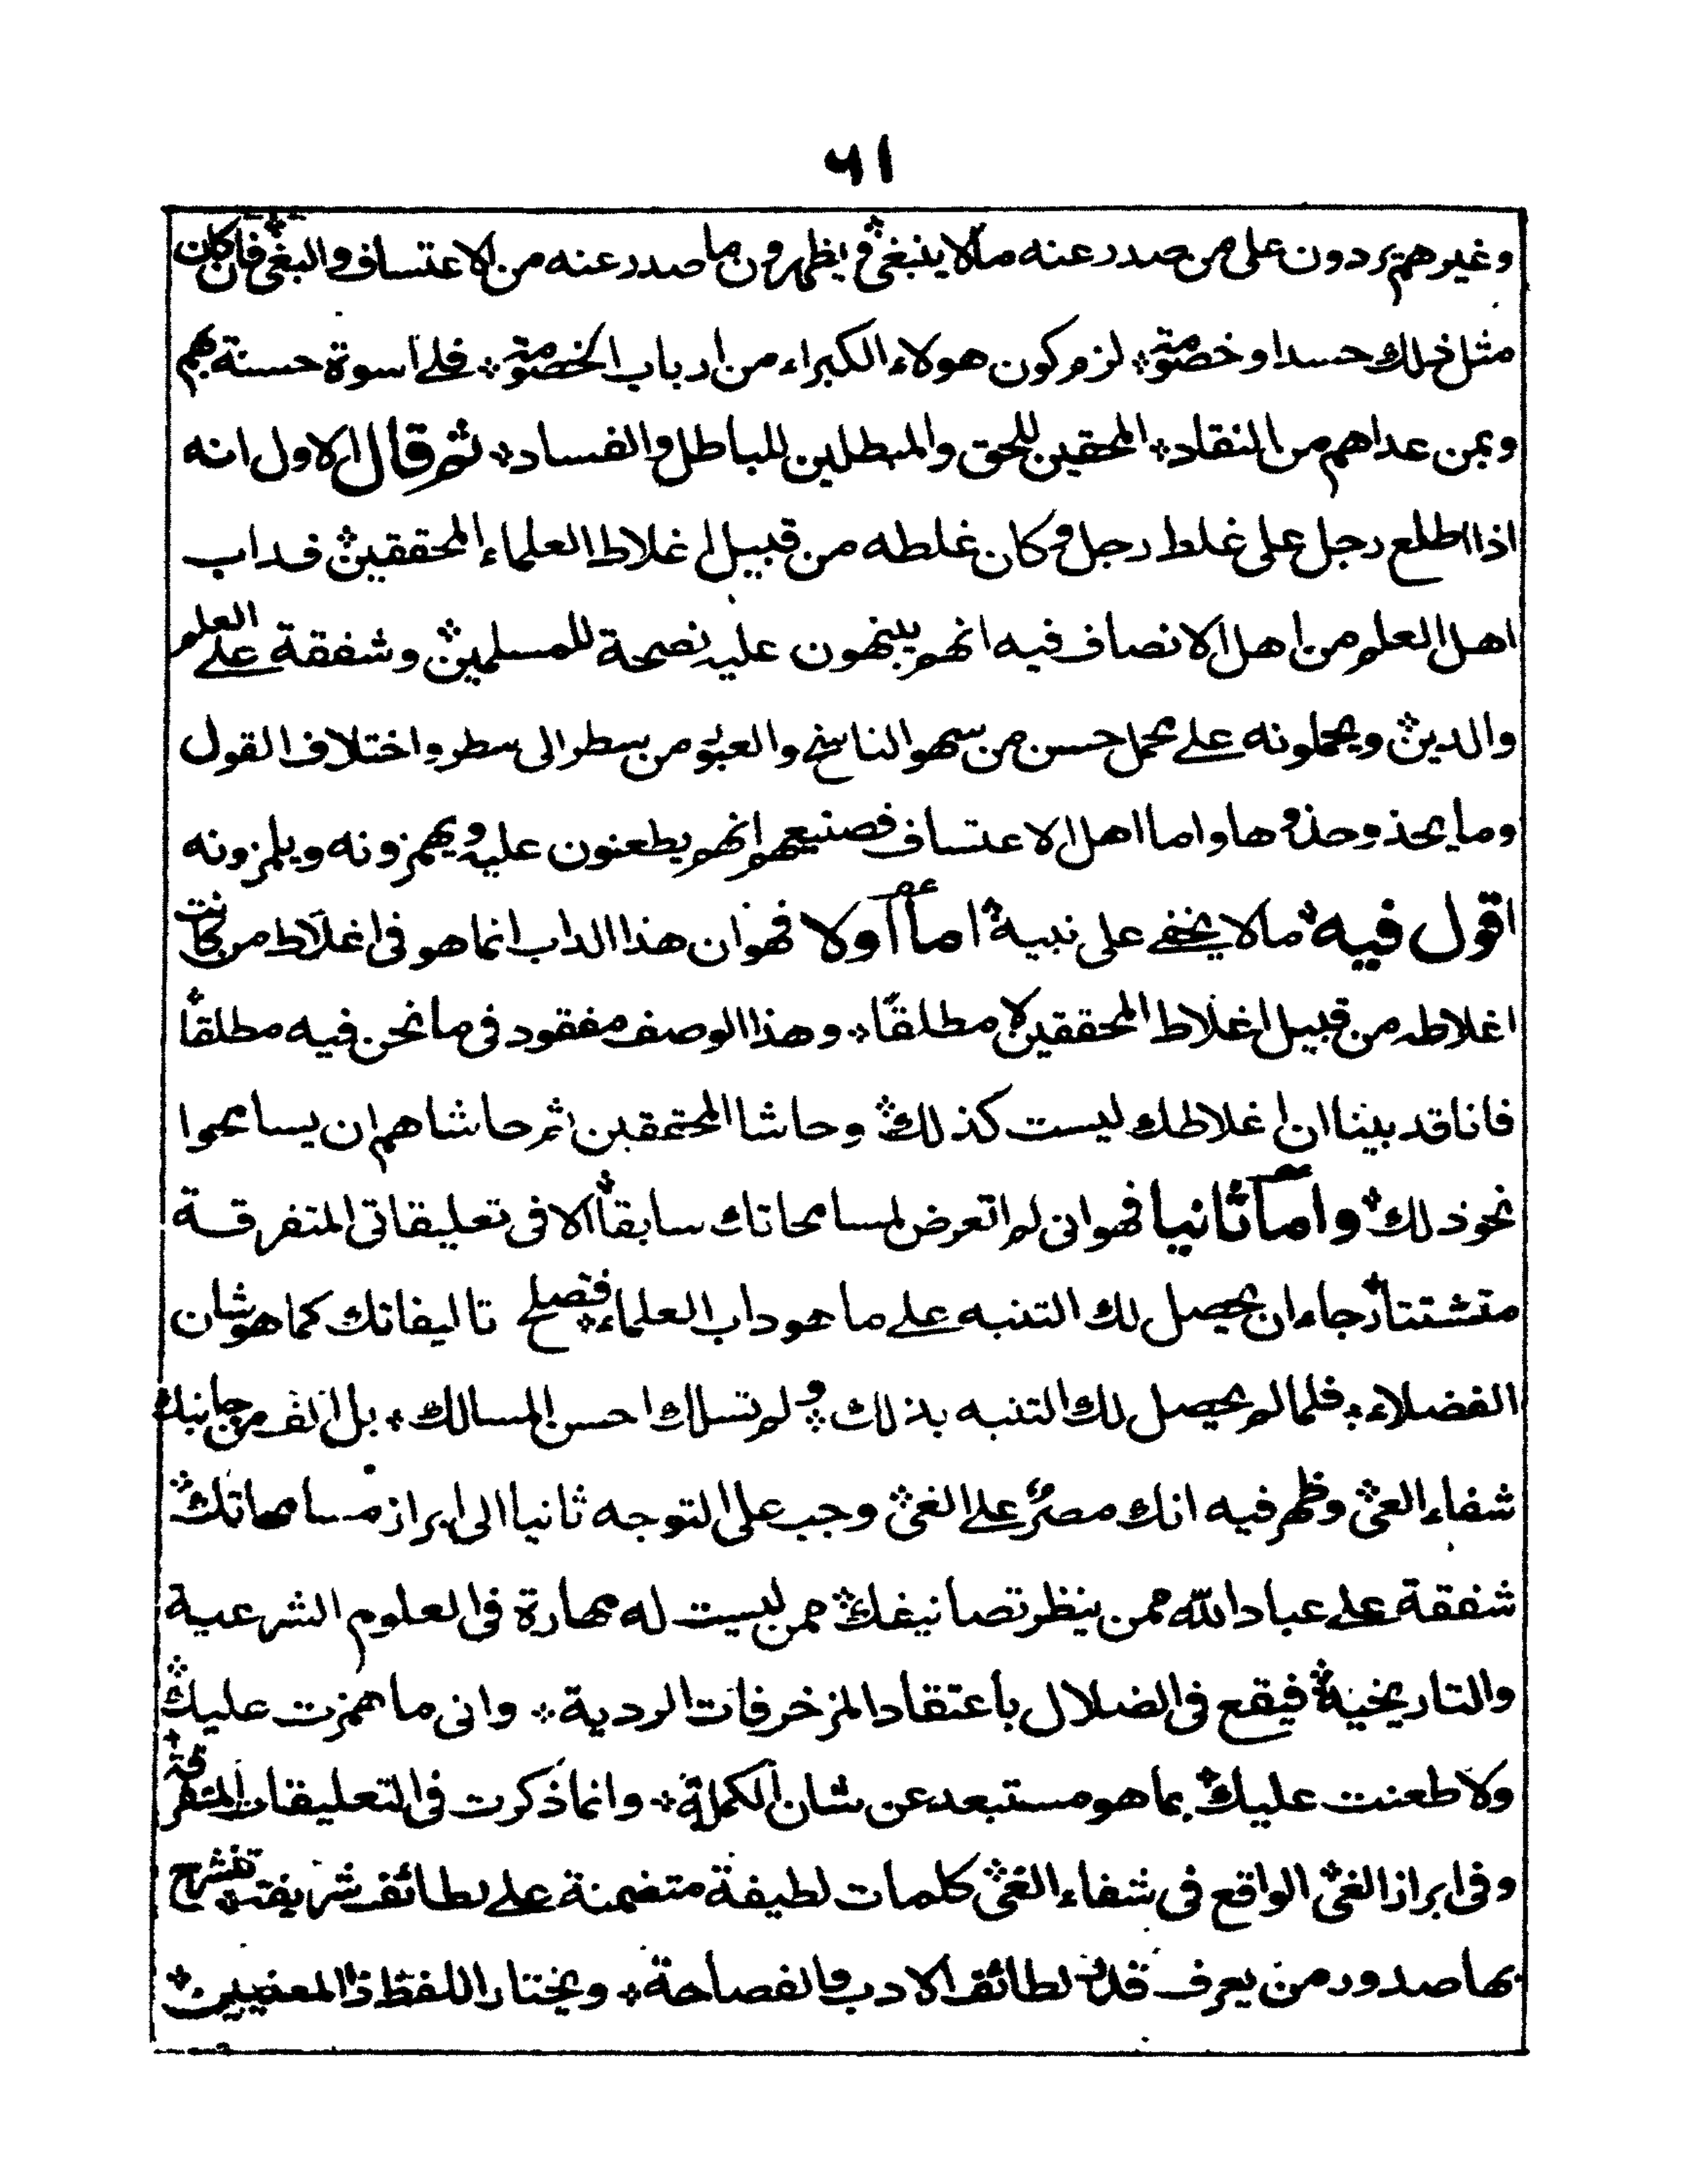 ٦١
وغيرهم يردون على من صدر عنه ما لا ينبغي ويظهرون ما صدر عنه من الاعتساف والبغي فان كان
مثل ذلك حسدا وخصومة لزم كون هولاء الكبراء من ارباب الخصومة فلي اسوة حسنة بهم
وبمن عداهم من النقاد المحقين للحق والمبطلين للباطل والفساد ثم قال الاول انه
اذا اطلع رجل على غلط رجل وكان غلطه من قبيل اغلاط العلماء المحققين فداب
اهل العلم من اهل الانصاف فيه انهم ينبهون عليه نصيحة للمسلمين وشفقة على العلم
والدين ويحملونه على محمل حسن من سهو الناسخ والعبور من سطر الى سطر واختلاف القول
وما يحذو حذوها واما اهل الاعتساف فصنيعهم انهم يطعنون عليه ويهمزونه ويلمزونه
اقول فيه ما لا يخفى على نبيه اما اولا فهو ان هذا الداب انما هو في اغلاط من كانت
اغلاطه من قبيل اغلاط المحققين لا مطلقا وهذا الوصف مفقود في ما نحن فيه مطلقا
فانا قد بينا ان اغلاطك ليست كذلك وحاشا المحققين ثم حاشاهم ان يسامحوا
نحو ذلك واما ثانيا فهو اني لم اتعرض لمسامحاتك سابقا الا في تعليقاتي المتفرقة
متشتتا رجاء ان يحصل لك التنبه على ما هو داب العلماء فتصلح تاليفاتك كما هو شان
الفضلاء فلما لم يحصل لك التنبه بذلك ولم تسلك احسن المسالك بل الف من جانبك
شفاء العي وظهر فيه انك مصر على الغي وجب علي التوجه ثانيا الى ابراز مسامحاتك
شفقة على عباد الله ممن ينظر تصانيفك ممن ليست له مهارة في العلوم الشرعية
والتاريخية فيقع في الضلال باعتقاد المزخرفات الردية واني ما همزت عليك
ولا طعنت عليك بما هو مستبعد عن شان الكملة وانما ذكرت في التعليقات المتفرقة
وفي ابراز الغي الواقع في شفاء العي كلمات لطيفة متضمنة على لطائف شريفة تنشرح
بها صدور من يعرف قدر لطائف الادب والفصاحة ويختار اللفظ ذا المعنيين